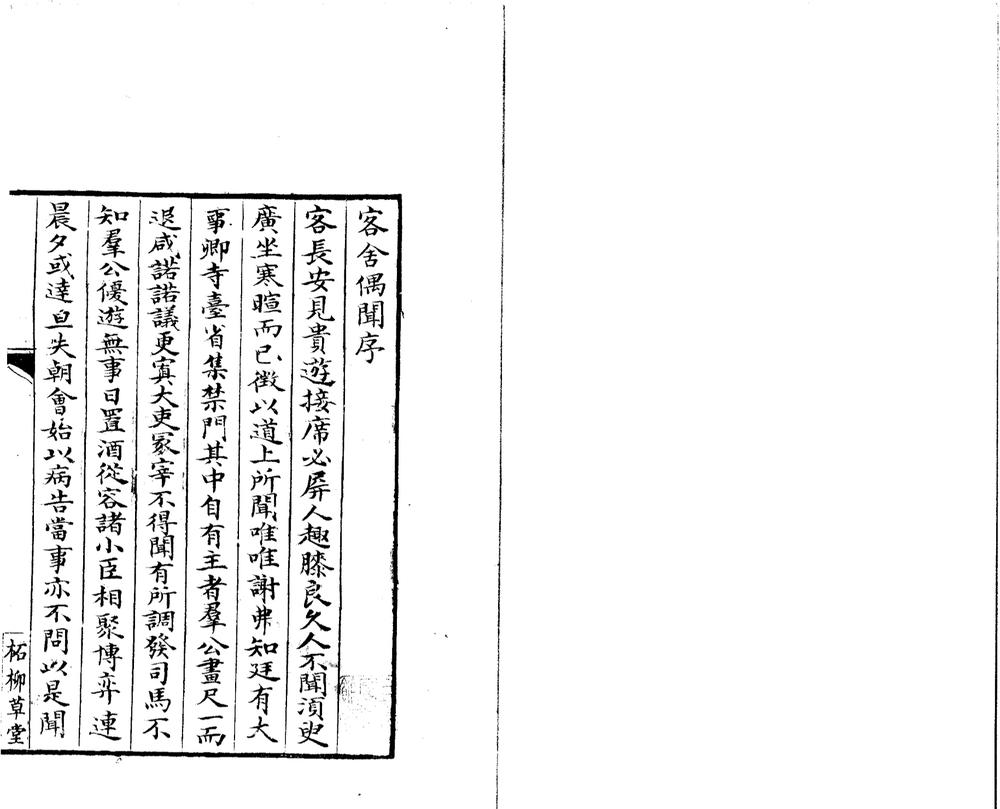 客舍偶聞序
客長安見貴遊接席必屏人趣膝良久人不聞須臾
廣坐寒暄而已徵以道上所聞唯唯謝弗知廷有大
事卿寺臺省集禁門其中自有主者羣公畫尺一而
退咸諾諾議更寘大吏冢宰不得聞有所調發司馬不
知羣公優遊無事日置酒從容諸小臣相聚博弈連
晨夕或達旦失朝會始以病告當事亦不問以是聞
柘柳草堂